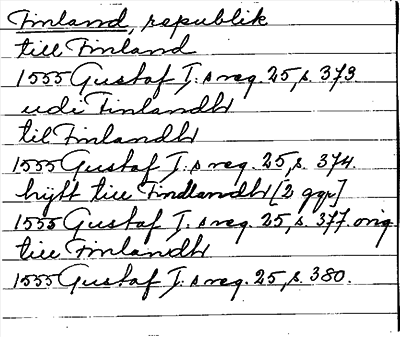 Finland, republik
till Finland
1555 Gustaf I:s reg. 25, s. 373.
udi Finlandh
til Finlandh
1555 Gustaf I:s reg. 25, s. 374.
hijtt till Findlandh [2 ggr]
1555 Gustaf I:s reg. 25, s. 377 orig.
till Finlandh
1555 Gustaf I:s reg. 25, s. 380.